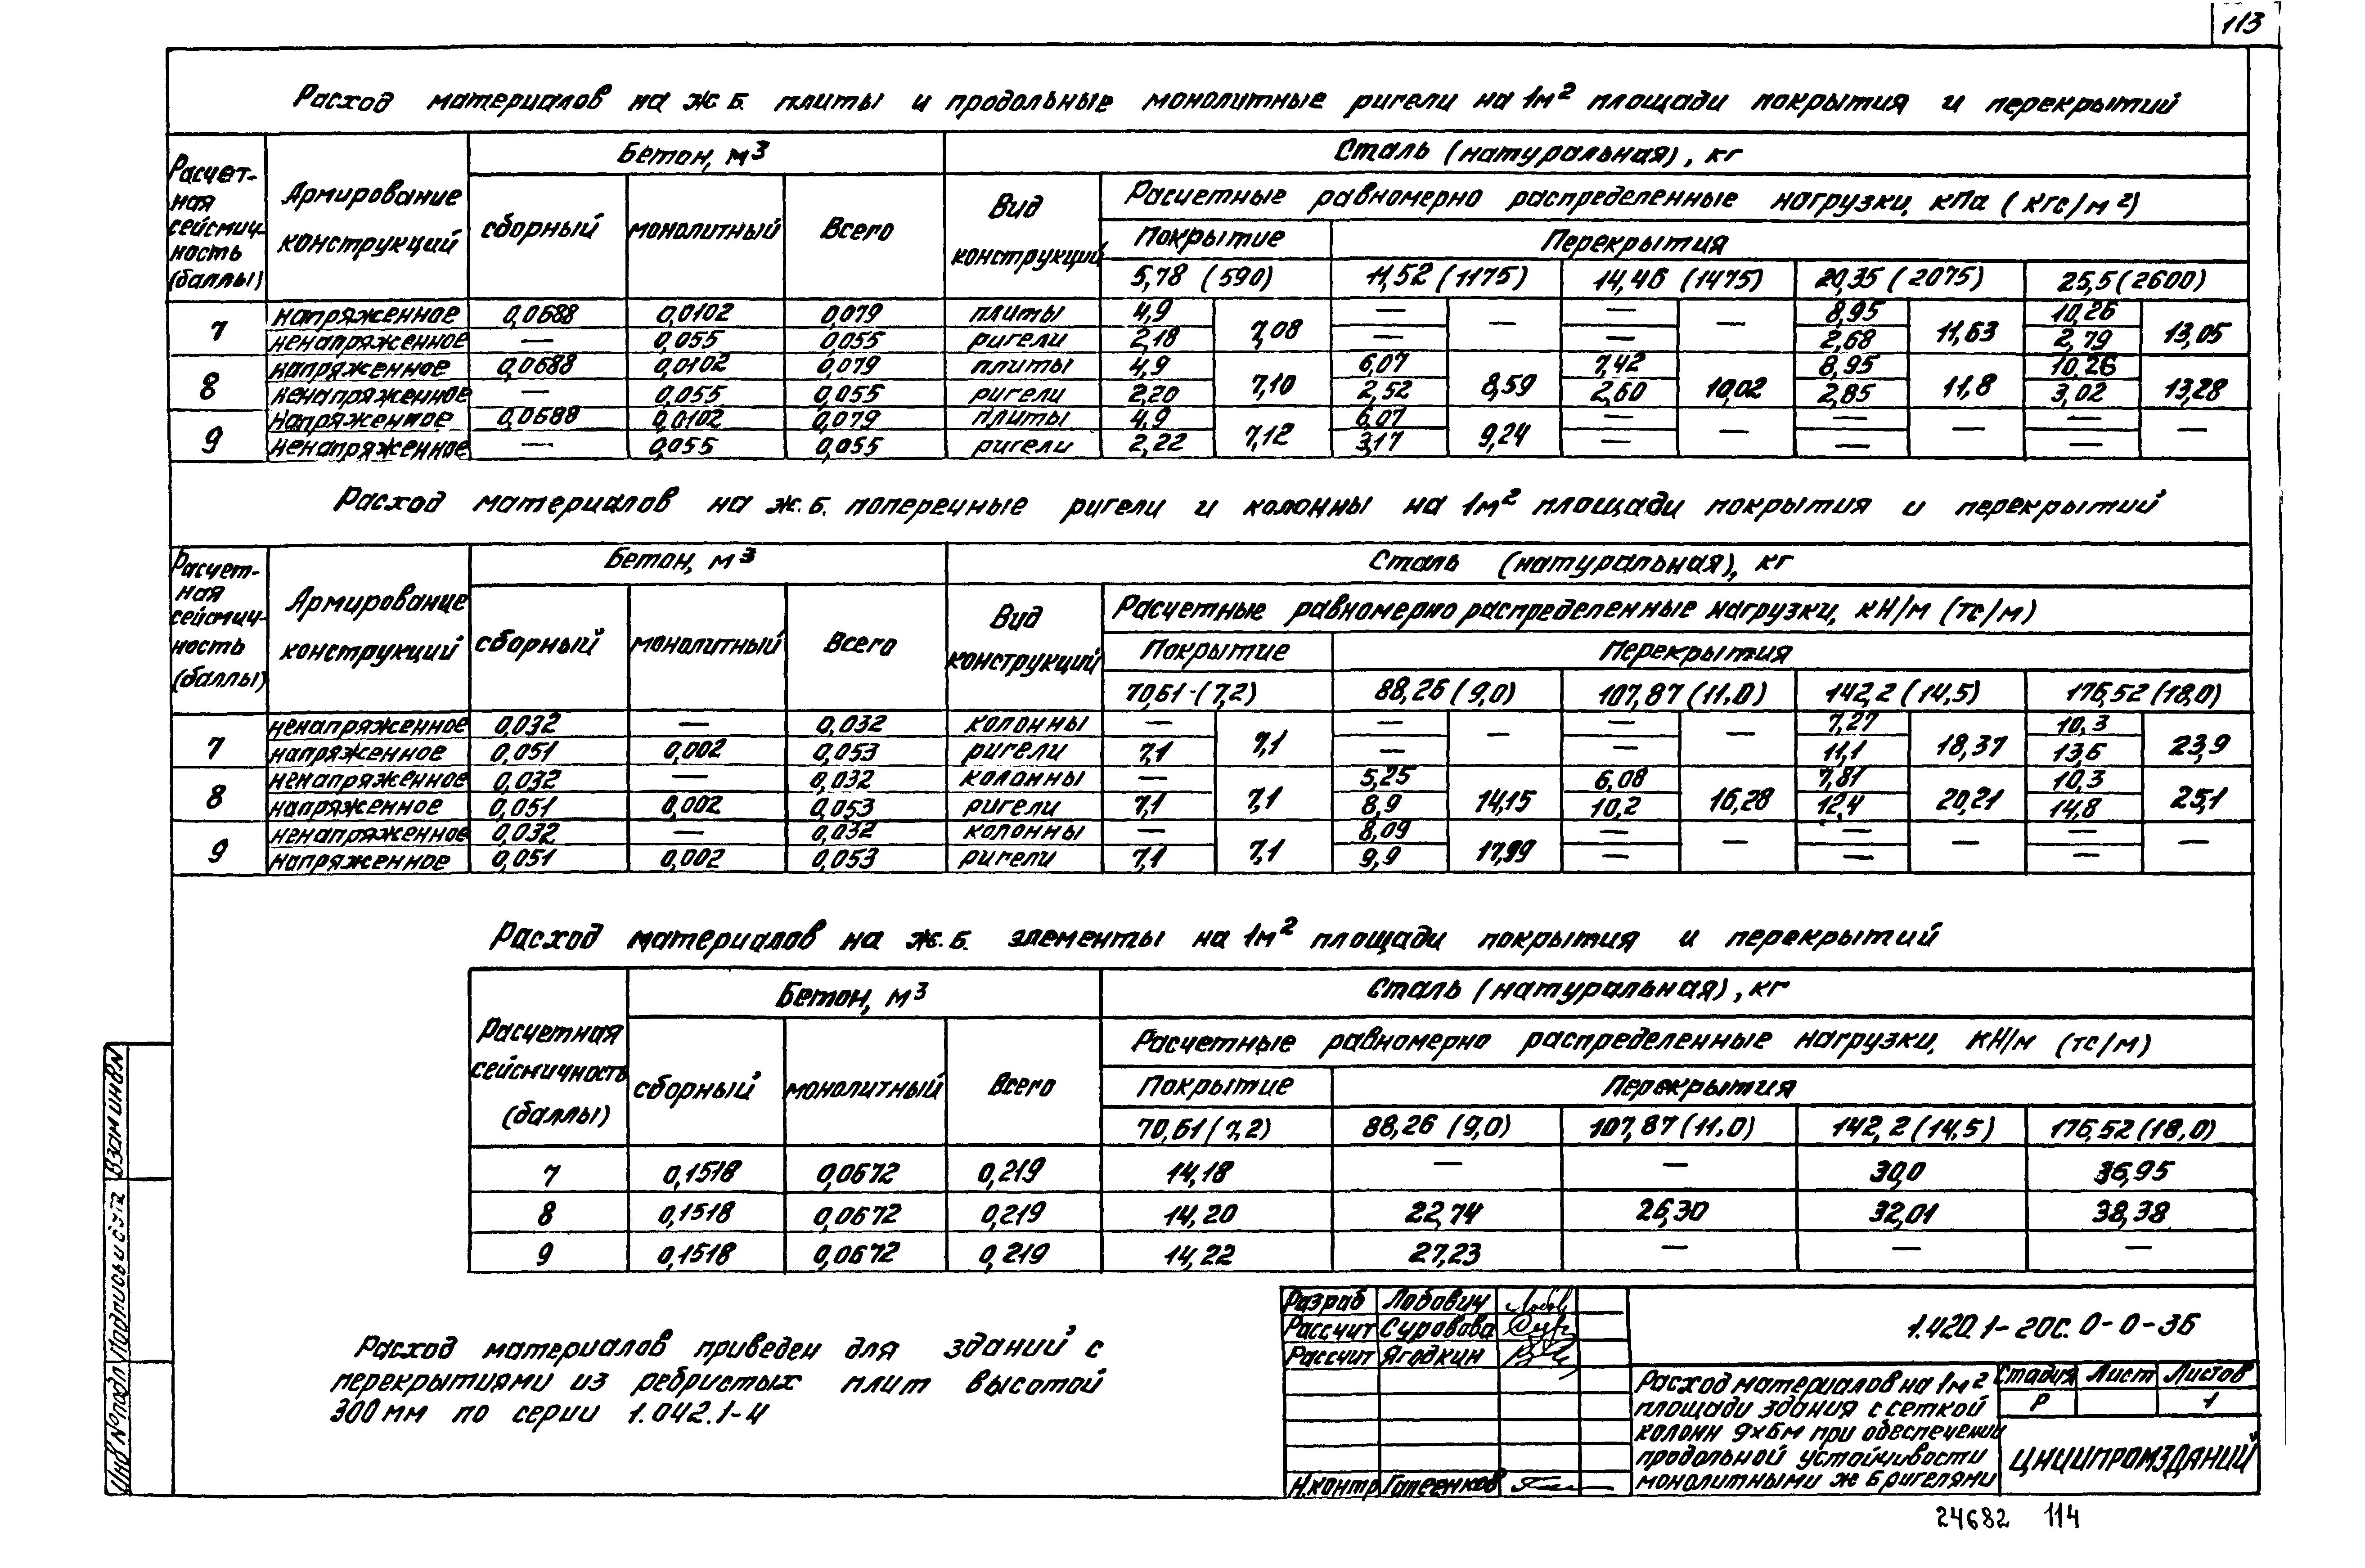 113
Расход материалов на ж.б. плиты и продольные монолитные ригели на 1м² площади покрытия и перекрытий
Расчет-ная сейсмич-ность (баллы) | Армирование конструкций | Бетон, м³ | Сталь (натуральная), кг
сборный | монолитный | Всего | Вид конструкций | Расчетные равномерно распределенные нагрузки, кПа (кгс/м²)
Покрытие | Перекрытия
5,78 (590) | 11,52 (1175) | 14,46 (1475) | 20,35 (2075) | 25,5 (2600)
7 | напряженное | 0,0688 | 0,0102 | 0,079 | плиты | 4,9 | 7,08 | — | — | — | — | 8,95 | 11,63 | 10,26 | 13,05
ненапряженное | — | 0,055 | 0,055 | ригели | 2,18 | — | — | 2,68 | 2,79
8 | напряженное | 0,0688 | 0,0102 | 0,079 | плиты | 4,9 | 7,10 | 6,07 | 8,59 | 7,42 | 10,02 | 8,95 | 11,8 | 10,26 | 13,28
ненапряженное | — | 0,055 | 0,055 | ригели | 2,20 | 2,52 | 2,60 | 2,85 | 3,02
9 | напряженное | 0,0688 | 0,0102 | 0,079 | плиты | 4,9 | 7,12 | 6,07 | 9,24 | — | — | — | — | — | —
ненапряженное | — | 0,055 | 0,055 | ригели | 2,22 | 3,17 | — | — | —
Расход материалов на ж.б. поперечные ригели и колонны на 1м² площади покрытия и перекрытий
Расчет-ная сейсмич-ность (баллы) | Армирование конструкций | Бетон, м³ | Сталь (натуральная), кг
сборный | монолитный | Всего | Вид конструкций | Расчетные равномерно распределенные нагрузки, кН/м (тс/м)
Покрытие | Перекрытия
70,61 (7,2) | 88,26 (9,0) | 107,87 (11,0) | 142,2 (14,5) | 176,52 (18,0)
7 | ненапряженное | 0,032 | — | 0,032 | колонны | — | 7,1 | — | — | — | — | 7,27 | 18,37 | 10,3 | 23,9
напряженное | 0,051 | 0,002 | 0,053 | ригели | 7,1 | — | — | 11,1 | 13,6
8 | ненапряженное | 0,032 | — | 0,032 | колонны | — | 7,1 | 5,25 | 14,15 | 6,08 | 16,28 | 7,81 | 20,21 | 10,3 | 25,1
напряженное | 0,051 | 0,002 | 0,053 | ригели | 7,1 | 8,9 | 10,2 | 12,4 | 14,8
9 | ненапряженное | 0,032 | — | 0,032 | колонны | — | 7,1 | 8,09 | 17,99 | — | — | — | — | — | —
напряженное | 0,051 | 0,002 | 0,053 | ригели | 7,1 | 9,9 | — | — | —
Расход материалов на ж.б. элементы на 1м² площади покрытия и перекрытий
Расчетная сейсмичность (баллы) | Бетон, м³ | Сталь (натуральная), кг
сборный | монолитный | Всего | Расчетные равномерно распределенные нагрузки, кН/м (тс/м)
Покрытие | Перекрытия
70,61 (7,2) | 88,26 (9,0) | 107,87 (11,0) | 142,2 (14,5) | 176,52 (18,0)
7 | 0,1518 | 0,0672 | 0,219 | 14,18 | — | — | 30,0 | 36,95
8 | 0,1518 | 0,0672 | 0,219 | 14,20 | 22,74 | 26,30 | 32,01 | 38,38
9 | 0,1518 | 0,0672 | 0,219 | 14,22 | 27,23 | — | — | —
Расход материалов приведен для зданий с
перекрытиями из ребристых плит высотой
300 мм по серии 1.042.1-4
Разраб Лобович
Рассчит Суровова
Рассчит Ягодкин
Н.контр Гапеенков
1.420.1-20с.0-0-36
Расход материалов на 1м²
площади здания с сеткой
колонн 9х6м при обеспечении
продольной устойчивости
монолитными ж б ригелями
Стадия Лист Листов
Р 1
ЦНИИПРОМЗДАНИЙ
Инв № подл Подпись и дата Взам инв №
24682 114